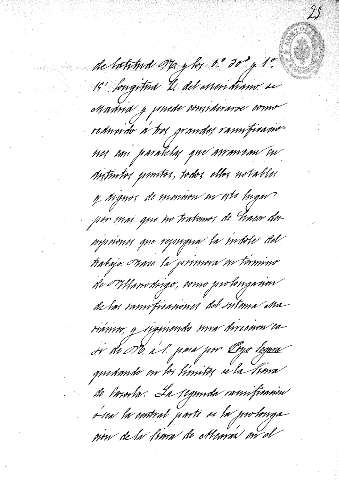 25
de latitud N. y los 0.° 30' y 1.°
18' longitud E. del Meridiano de
Madrid y puede considerarse como
reducido á tres grandes ramificacio-
nes casi paralelas que arrancan en
distintos puntos, todos ellos notables
y dignos de mencion en este lugar
por mas que no tratemos de hacer des-
cripciones que repugna la indole del
trabajo. Nace la primera en termino
de Villarrodrigo, como prolongacion
de las ramificaciones del sistema Ma-
riánico, y siguiendo una direccion ca-
si de N. á S. pasa por
quedando en los límites de la Sierra
de Cazorla. La segunda ramificacion
ó sea la central parte de la prolonga-
cion de la Sierra de Alcaráz en el